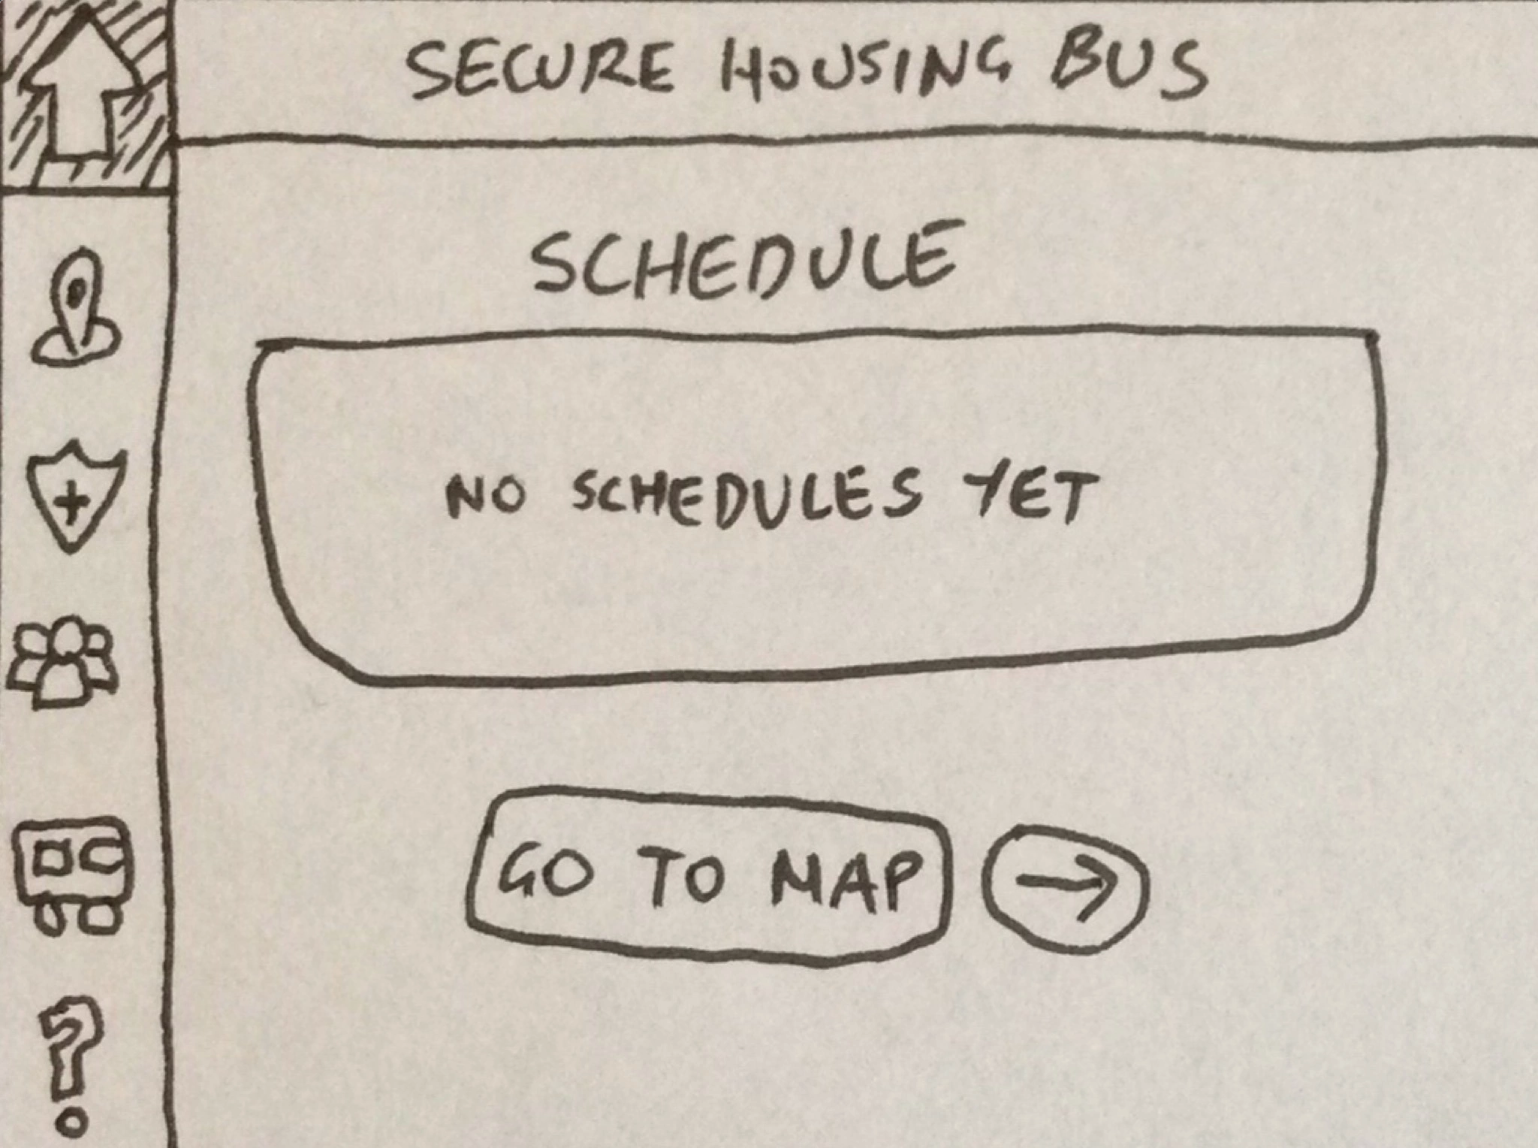 SECURE HOUSING BUS
SCHEDULE
NO SCHEDULES YET
GO TO MAP